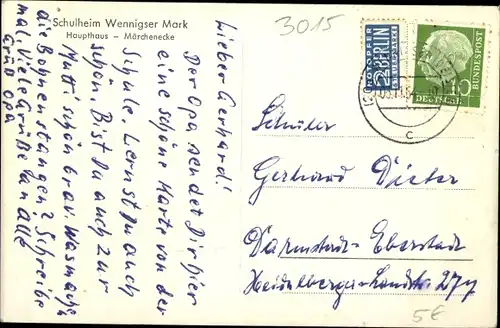 Schulheim Wennigser Mark
Haupthaus – Märchenecke
3015
Lieber Gerhard!
Der Opa sendet Dir hier
eine schöne Karte von der
Schule. Lernst Du auch
schön. Bist Du auch zur
Mutti schön brav. Was mach
die Bohnenstangen? Schreibe
mal. Viele Grüße an alle
Gruß Opa
NOTOPFER
2 BERLIN
STEUERMARKE
DEUTSCHE
BUNDESPOST
10
c
Schüler
Gerhard Dieter
Darmstadt-Eberstadt
Heidelberger-Landstr. 277
5€